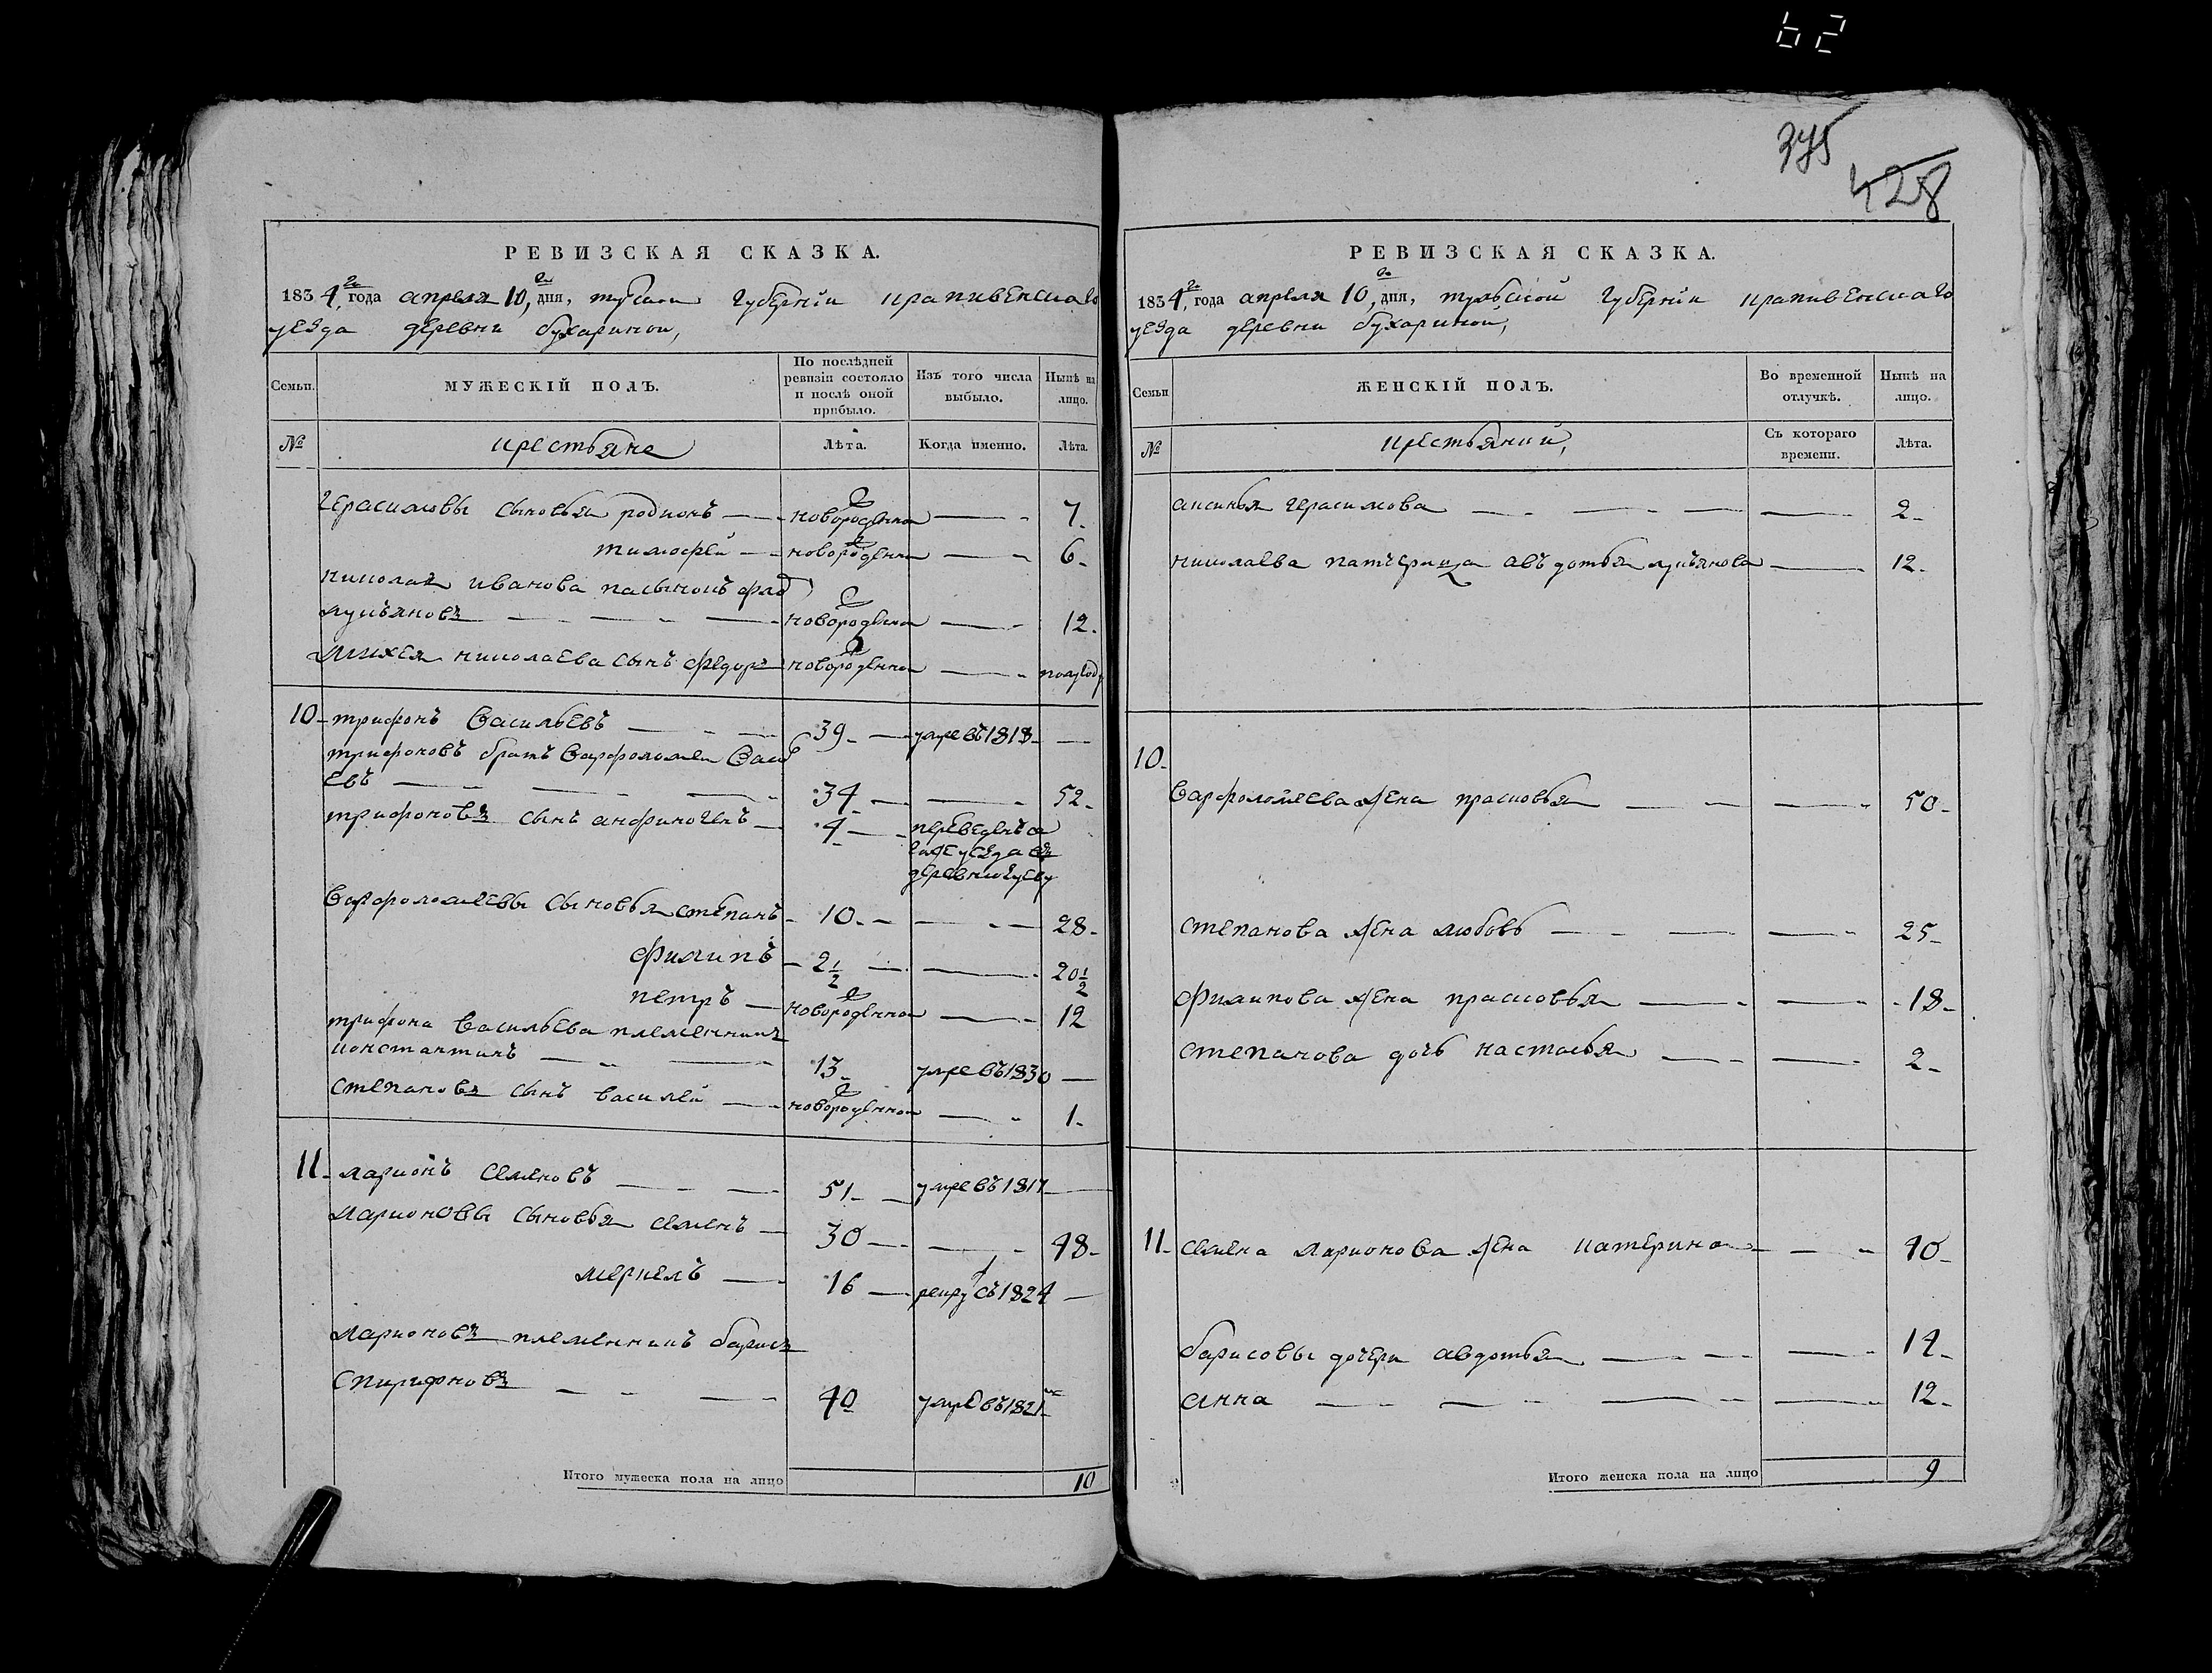 62
375
428
РЕВИЗСКАЯ СКАЗКА.
1834го года апреля 10го дня, тулской губернiи крапивенскаго
уезда деревни бухариной,
Семьи. МУЖЕСКIЙ ПОЛЪ. По послѣдней ревизiи состояло и послѣ оной прибыло. Изъ того числа выбыло. Нынѣ на лицо.
№ крестьяне Лѣта. Когда именно. Лѣта.
Герасимовы сыновья родионъ новорожденной 7
тимофей новорожденной 6
николая иванова пасынокъ
лукъяновъ новорожденной 12
михея николаева сынъ федоръ новорожденной полугоду
10 трифонъ васильевъ 39 умре въ 1818
трифоновъ братъ варфоломей Василь
евъ 34 52
трифоновъ сынъ анфиногенъ 4 переведенъ
уезда въ
деревню
Варфоломеевы сыновья степанъ 10 28
филипъ 2 1/2 20 1/2
петръ новорожденной 12
трифона Васильева племянникъ
константинъ 13 умре въ 1830
степановъ сынъ василей новорожденной 1
11 ларионъ семеновъ 51 умре въ 1817
ларионовы сыновья семенъ 30 48
меркелъ 16 рекру съ 1824
ларионовъ племенникъ барисъ
Спирифновъ 40 умре въ 1821
Итого мужеска пола на лицо 10
РЕВИЗСКАЯ СКАЗКА.
1834го года апреля 10го дня, тульской губернiи крапивенскаго
уезда деревни бухариной,
Семьи ЖЕНСКIЙ ПОЛЪ. Во временной отлучкѣ. Нынѣ на лицо.
№ крестьянки, Съ котораго времени. Лѣта.
аксинья герасимова 2
николаева патчерица авъдотья лукъянова 12
10
варфоломеева жена прасковья 50
степанова жена любовь 25
филипова жена прасковья 18
степанова дочь настасья 2
11 семена ларионова жена катерина 40
барисовы дочери авдотья 14
анна 12
Итого женска пола на лицо 9